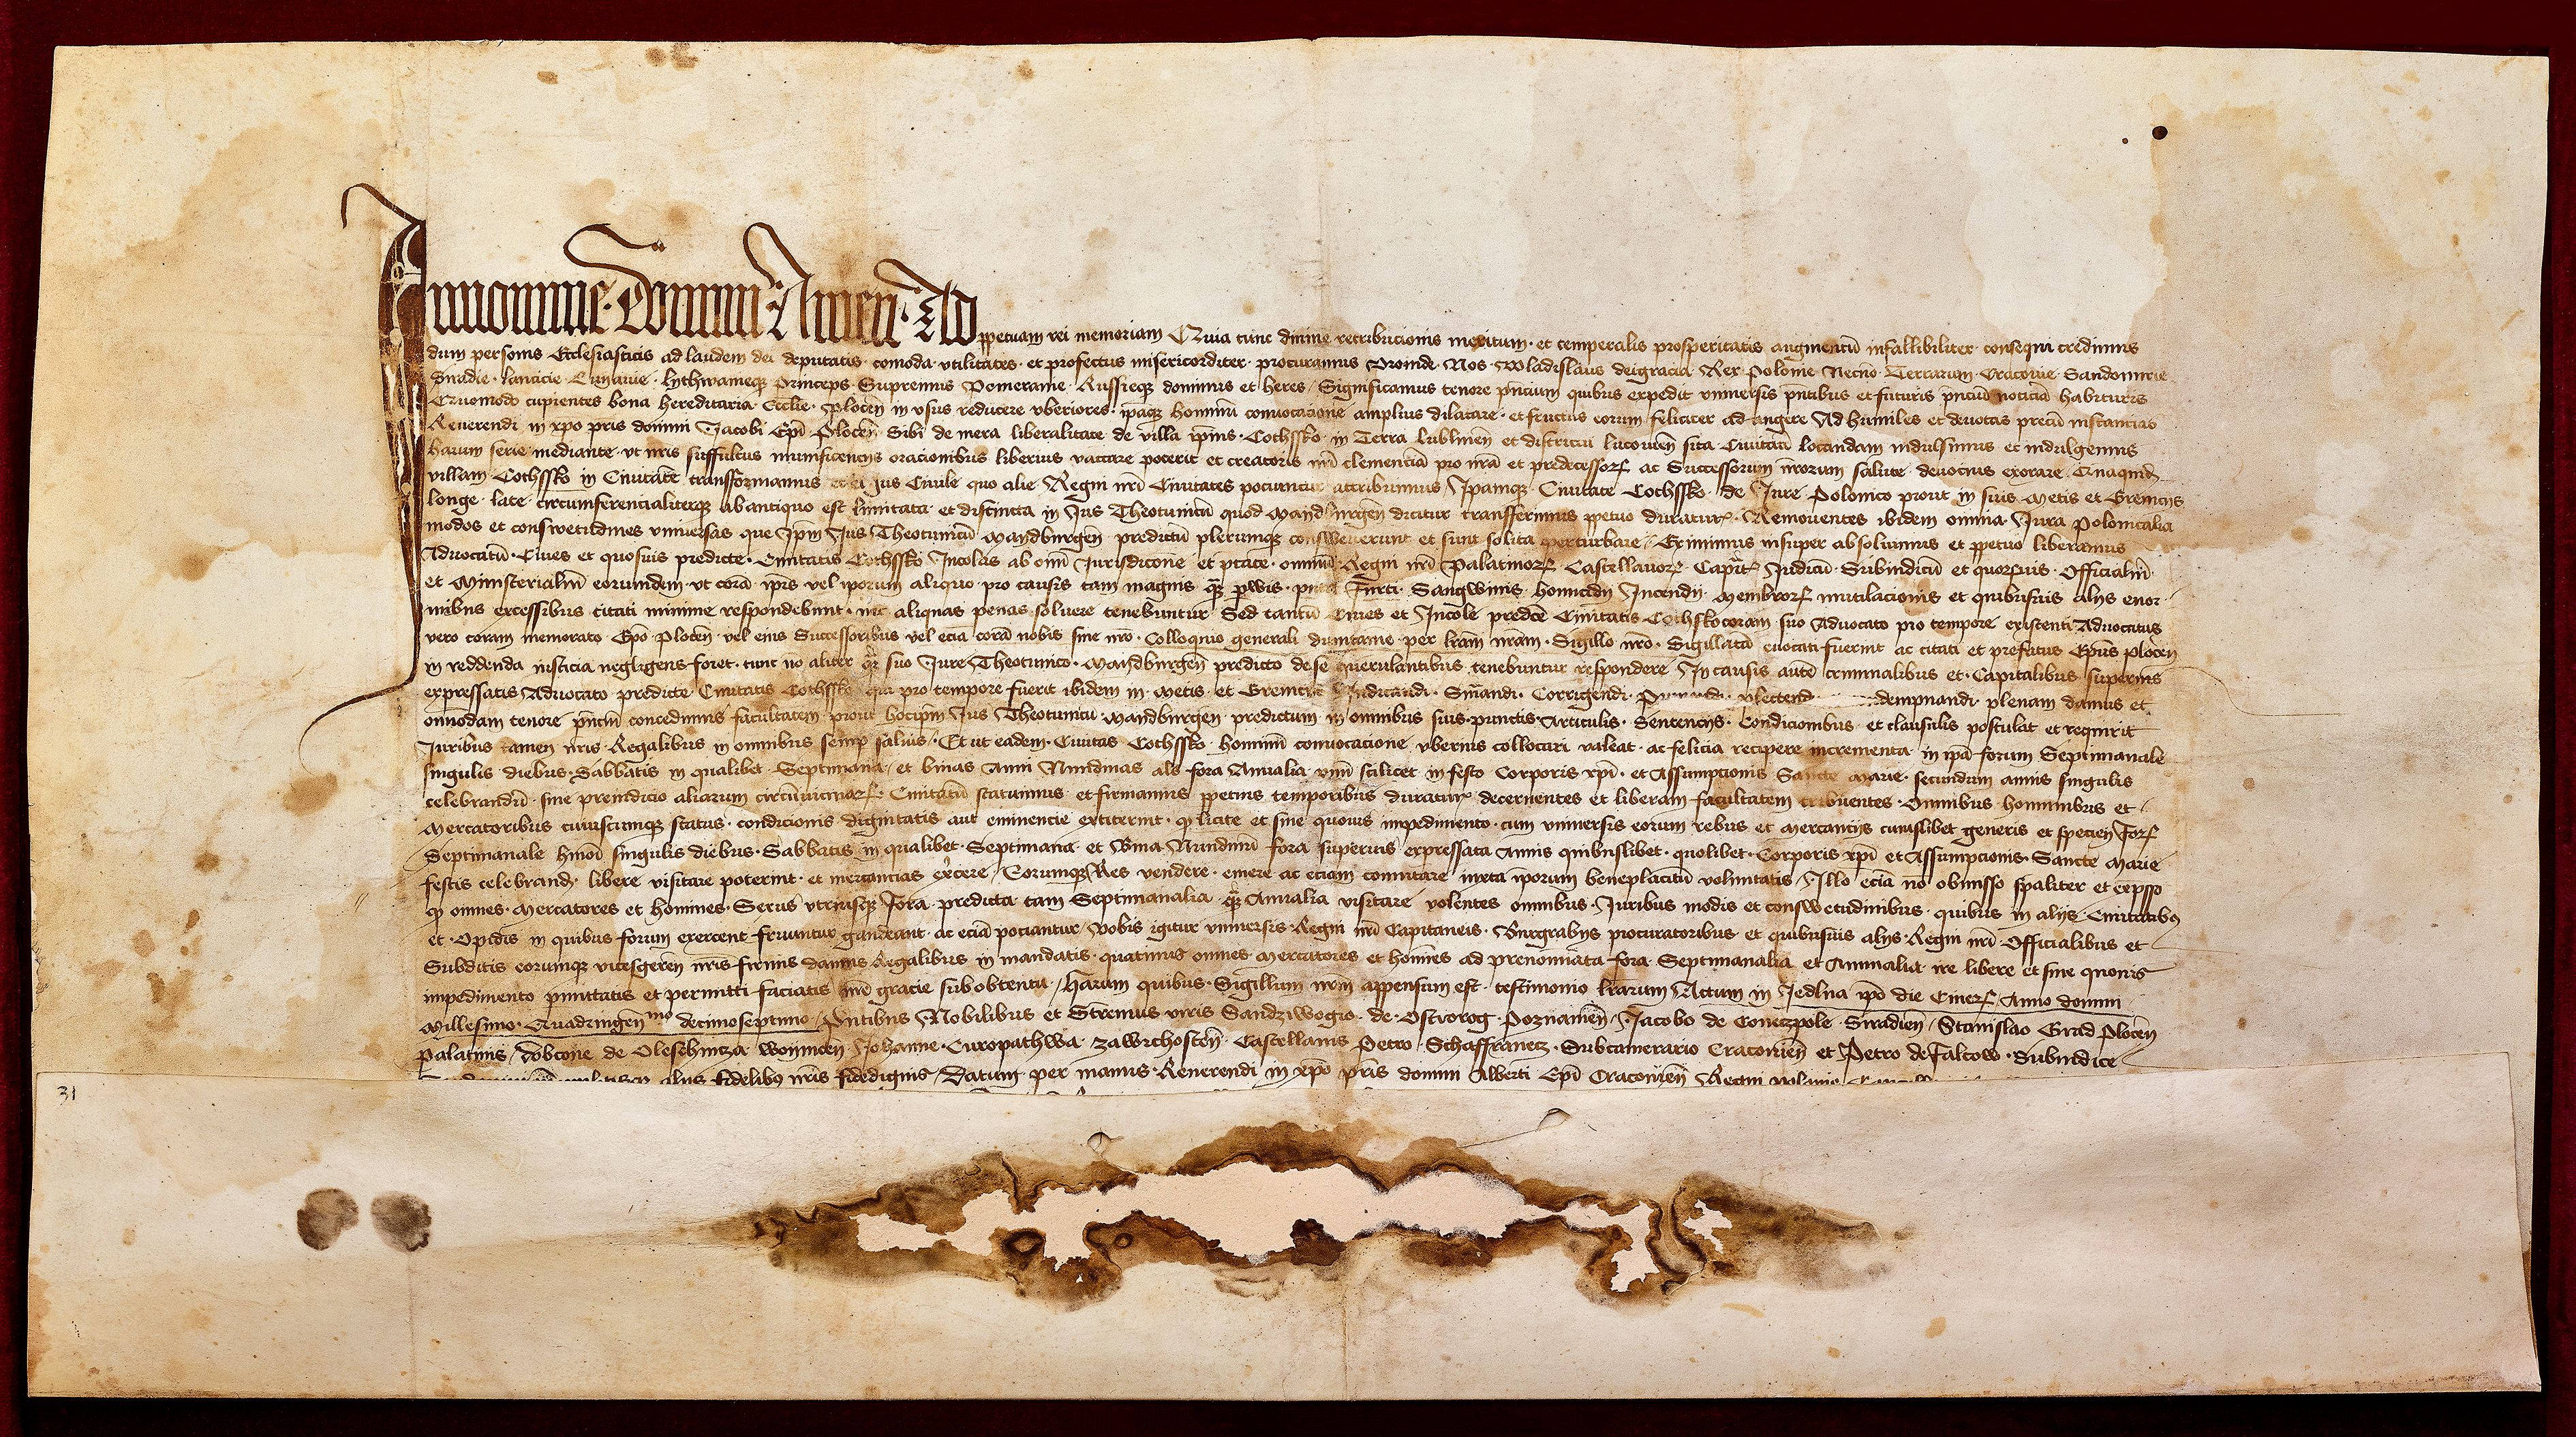 In nomine Domini Amen Ad ppetuam rei memoriam Quia tunc divine retribucionis meritum et temporalis prosperitatis augmentū infallibiliter consequi credimus
dum personis Ecclesiasticis ad laudem dei deputatis comoda utilitates et profectus misericorditer procuramus Proinde Nos Wladislaus deigracia Rex Polonie Necno Terrarum Cracovie Sandomirie
Siradie Lancicie Cuyavie Lythwanieqz Princeps Supremus Pomeranie Russieqz dominus et heres Significamus tenore pntium quibus expedit universis pntibus et futuris pntiū noticiā habituris
Quomodo cupientes bona hereditaria Ecclie Plocen in usus reducere uberiores ipaqz hominū convocacione amplius dilatare et fructus eorum feliciter adaugere Ad humiles et devotas precū instancias
Reverendi in xpo pris domini Jacobi Epi Plocen Sibi de mera liberalitate de villa ipius Cothssko in Terra Lublinen et districtu Lucovien sita Civitatē locandam indulsimus et indulgemus
harum serie mediante ut nris suffultus munificencijs oracionibus liberius vaccare poterit et creatoris nri clemenciā pro nra et predecessorꝝ ac Successorum nrorum salute devocius exorare Quaquidē
villam Cothssko in Civitatē transformamus et ei Jus Civile quo alie Regni nri Civitates pociuntur attribuimus Ipamqz Civitatē Cothssko de Jure Polonico prout in suis Metis et Granicijs
longe late circumferencialiterqz ab antiquo est limitata et distincta in Jus Theotunicū quod Mandburgen dicitur transferimus ppetuo duraturꝝ Removentes ibidem omnia Jura Polonicalia
modos et conswetudines universas que Ipm Jus Theotunicū Mandburgen predictū plerumqz consweverunt et sunt solita perturbare Eximimus insuper absolvimus et ppetuo liberamus
Advocatū Cives et quosvis predicte Civitatis Cothssko Incolas ab omi Jurisdiccone et ptate omniū Regni nri Palatinorꝝ Castellanorꝝ Capitꝝ Judicū Subiudicū et quorumvis Officialiū
et Ministerialiū eorundem ut corā ipis vel iporum aliquo pro causis tam magnis qꝫ pvis puta Furti Sangwinis homicidij Incendij Membrorꝝ mutilacionis et quibusvis alijs enor
mibus excessibus citati minime respondebunt nec aliquas penas solvere tenebuntur Sed tantū Cives et Incole predce Civitatis Cothssko coram suo Advocato pro tempore existenti Advocatus
vero coram memorato Epo Plocen vel eius Successoribus vel ecia corā nobis sive nro Colloquio generali dumtamē per lram nram Sigillo nro Sigillatā evocati fuerint ac citati et prefatus Epus Plocen
in reddenda iusticia negligens foret tunc no aliter qꝫ suo Jure Theotunico Mandburgen predicto de se querulantibus tenebuntur respondere In causis autē criminalibus et Capitalibus superius
expressatis Advocato predicte Civitatis Cothssko qui pro tempore fuerit ibidem in Metis et Granicijs Judicandi Smandi Corrigendi plectendi dempnandi plenam damus et
omodam tenore pntiū concedimus facultatem prout hocipm Jus Theotunicū Mandburgen predictum in omnibus suis punctis Articulis Sentencijs Condicionibus et clausulis postulat et requirit
Juribus tamen nris Regalibus in omnibus semp salvis Et ut eadem Civitas Cothssko hominū convocacione uberius collocari valeat ac felicia recipere incrementa in ipa forum Septimanale
singulis diebus Sabbatis in qualibet Septimana et binas Anni Nundinas als fora Annalia unū scilicet in festo Corporis xpi et Assumpcionis Sancte Marie secundum annis singulis
celebrandū sine preiudicio aliarum circūvicinorꝝ Civitatū statuimus et firmamus ppetuis temporibus duraturꝝ decernentes et liberam facultatem tribuentes Omnibus hominibus et
Mercatoribus cuiuscumqz status condicionis dignitatis aut eminencie extiterint qꝫ licite et sine quovis impedimento cum universis eorum rebus et mercancijs cuiuslibet generis et speciei Forꝝ
Septimanale hmoi singulis diebus Sabbatis in qualibet Septimana et Bina Nundinū fora superius expressata Annis quibuslibet quolibet Corporis xpi et Assumpcionis Sancte Marie
festis celebrandꝝ libere visitare poterint et mercancias exercere Eorumqz Res vendere emere ac eciam comutare iuxta iporum beneplacitū voluntatis Illo eciā no obmisso spaliter et expsso
qꝫ omnes Mercatores et homines Sexus utriusqz Fora predicta tam Septimanalia qꝫ Annalia visitare volentes omnibus Juribus modis et conswetudinibus quibus in alijs Civitatibꝫ
et Opidis in quibus forum exercent fruuntur gaudeant ac eciā pociantur Vobis igitur universis Regni nri Capitaneis Burgrabijs procuratoribus et quibusvis alijs Regni nri Officialibus et
Subditis eorumqz vicesgeren nris firmis damus Regalibus in mandatis quatinus omnes mercatores et homies ad prenominata fora Septimanalia et Annualia ire libere et sine quovis
impedimento pmittatis et permitti faciatis nre gracie sub obtentu Harum quibus Sigillum nrm appensum est testimonio lrarum Actum in Jedlna ipo die Cinerꝝ Anno domini
Millesimo Quadringen mo decimoseptimo Pntibus Nobilibus et Strenuis viris Sandziwogio de Ostrorog Poznanien Jacobo de Coneczpole Siradien Stanislao Grad Plocen
Palatinis Dobcone de Oleschnicza Woynicen Johanne Curopathwa Zawichosten Castellanis Petro Schaffranecz Subcamerario Cracovien et Petro de Falcow Subiudice
alijs fidelibꝫ nris fidedignis Datum per manus Reverendi in xpo pris domini Alberti Epi Cracovien Regni
31